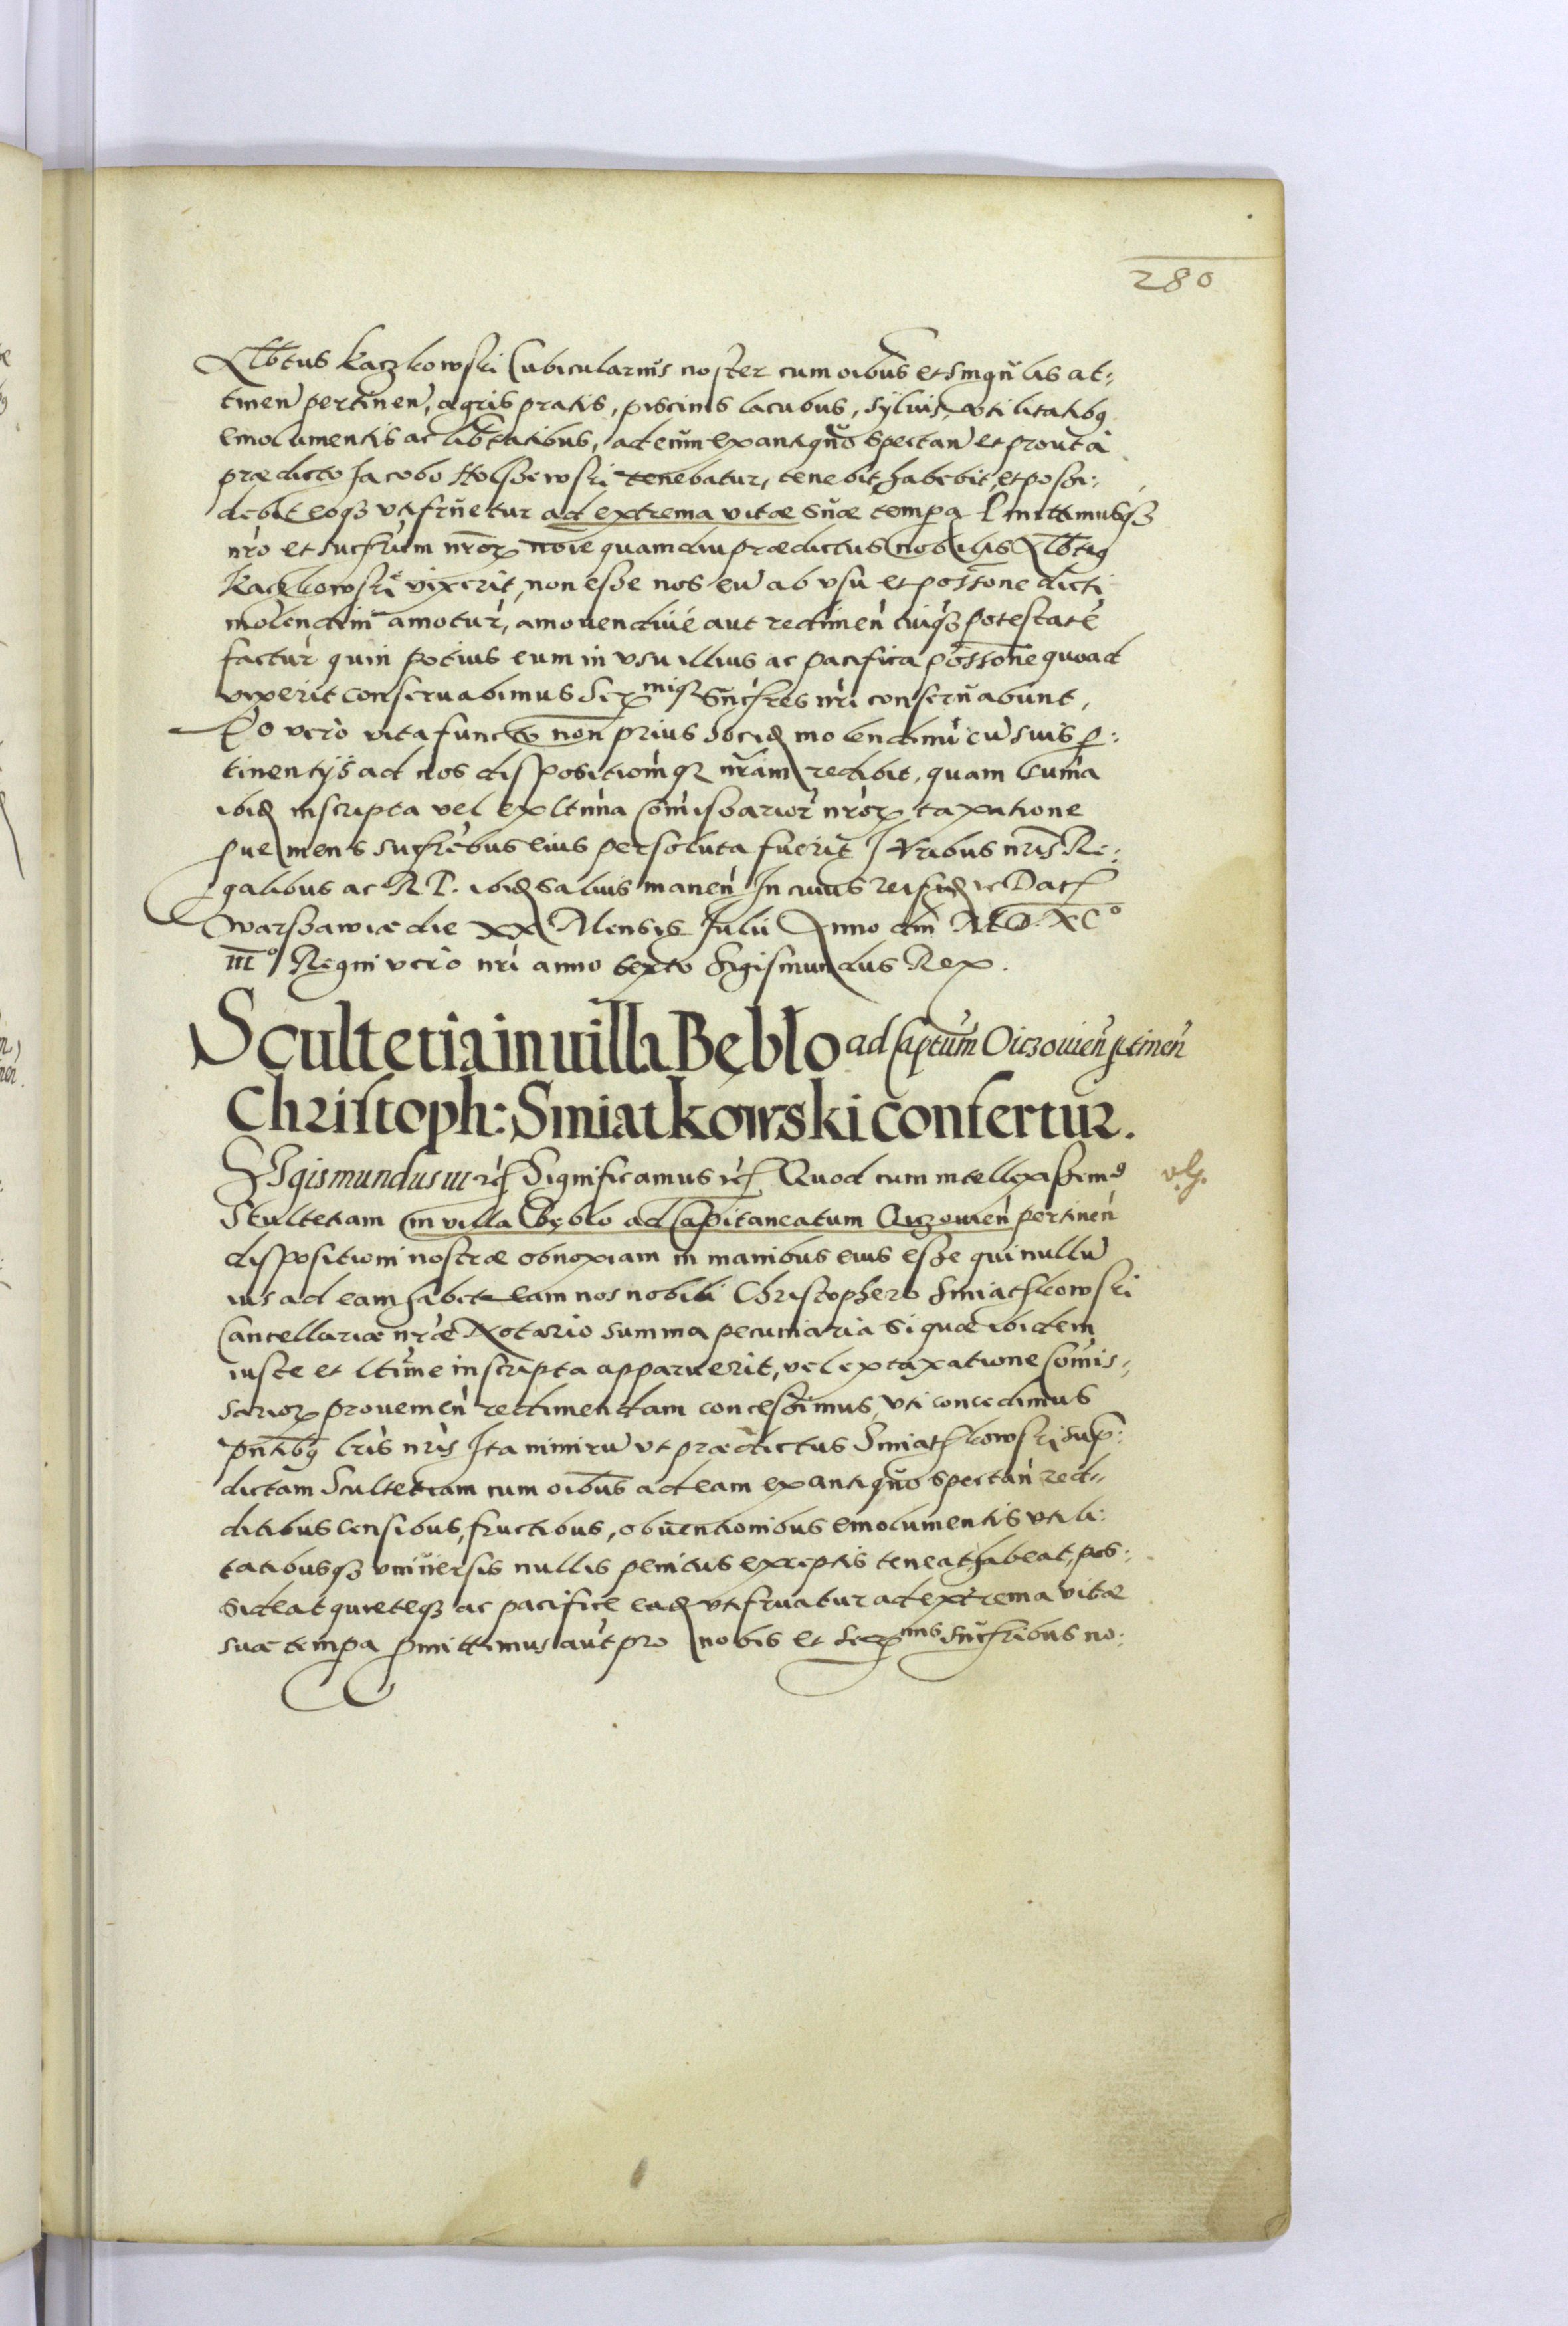 280
Albtus Kaczkowski Cubicularius noster cum oibus et singulis at:
tinen pertinen, agris pratis, piscinis lacubus, syluis, vtilitatibus
emolumentis ac libtatibus, ad eum ex antiquo spectan et prout à
prædicto Jacobo tenebatur, tenebit, habebit, et possi:
debit eoq3 vtifruetur ad extrema vitæ suæ tempa Pmittimusq3
nro et succrum nror noie quamdiu prædictus nobilis Albtus
Kaczkowski vixerit, non esse nos eu ab vsu et possone dicti
molendini amotur, amouendiue aut redimen cuiq3 potestatē
factur quin potius eum in vsu illius ac pacifica possone quoad
vixerit conseruabimus Sermiq3 succres nri conseruabunt,
Eo vero vita functo non prius molendini cu suis p:
tinentijs ad nos dispositionemq3 nram redibit, quam suma
ibid inscripta vel ex ltima Comissarior nror taxatione
pueniens succribus eius persoluta fuerit Juribus nris Re:
galibus ac RP. ibid saluis manen In cuius rei fid etc Dat
Warssawiæ die XX Mensis Julii Anno dni MD.XCo
IIIo Regni vero nri anno sexto Sigismundus Rex.
Scultetia in uilla Bęblo ad Captum Oiczouien ptinen
Christoph: Smiatkowski confertur.
Sigismundus III etc Significamus etc Quod cum intellexissimus
Scultetiam in villa Bęblo ad Capitaneatum Oiczouien pertinen
dispositioni nostræ obnoxiam in manibus eius esse qui nullu
ius ad eam habet eam nos nobili Christophero Smiathkowski
Cancellariæ nræ Notario summa pecuniaria si quæ ibidem
iuste et ltime inscripta apparuerit, vel ex taxatione Comis:
sarior prouenien redimendam concessimus, vti concedimus
pntibus lris nris Ita nimiru vt prædictus Smiathkowski sup:
dictam Scultetiam cum oibus ad eam ex antiquo spectan red:
ditibus censibus, fructibus, obuentionibus emolumentis vtili:
tatibusq3 vniuersis nullis penitus exceptis teneat habeat, pos:
sideat quieteq3 ac pacifice ead vtifruatur ad extrema vitæ
suæ tempa pmittimus aut pro nobis et Sermis succribus no: